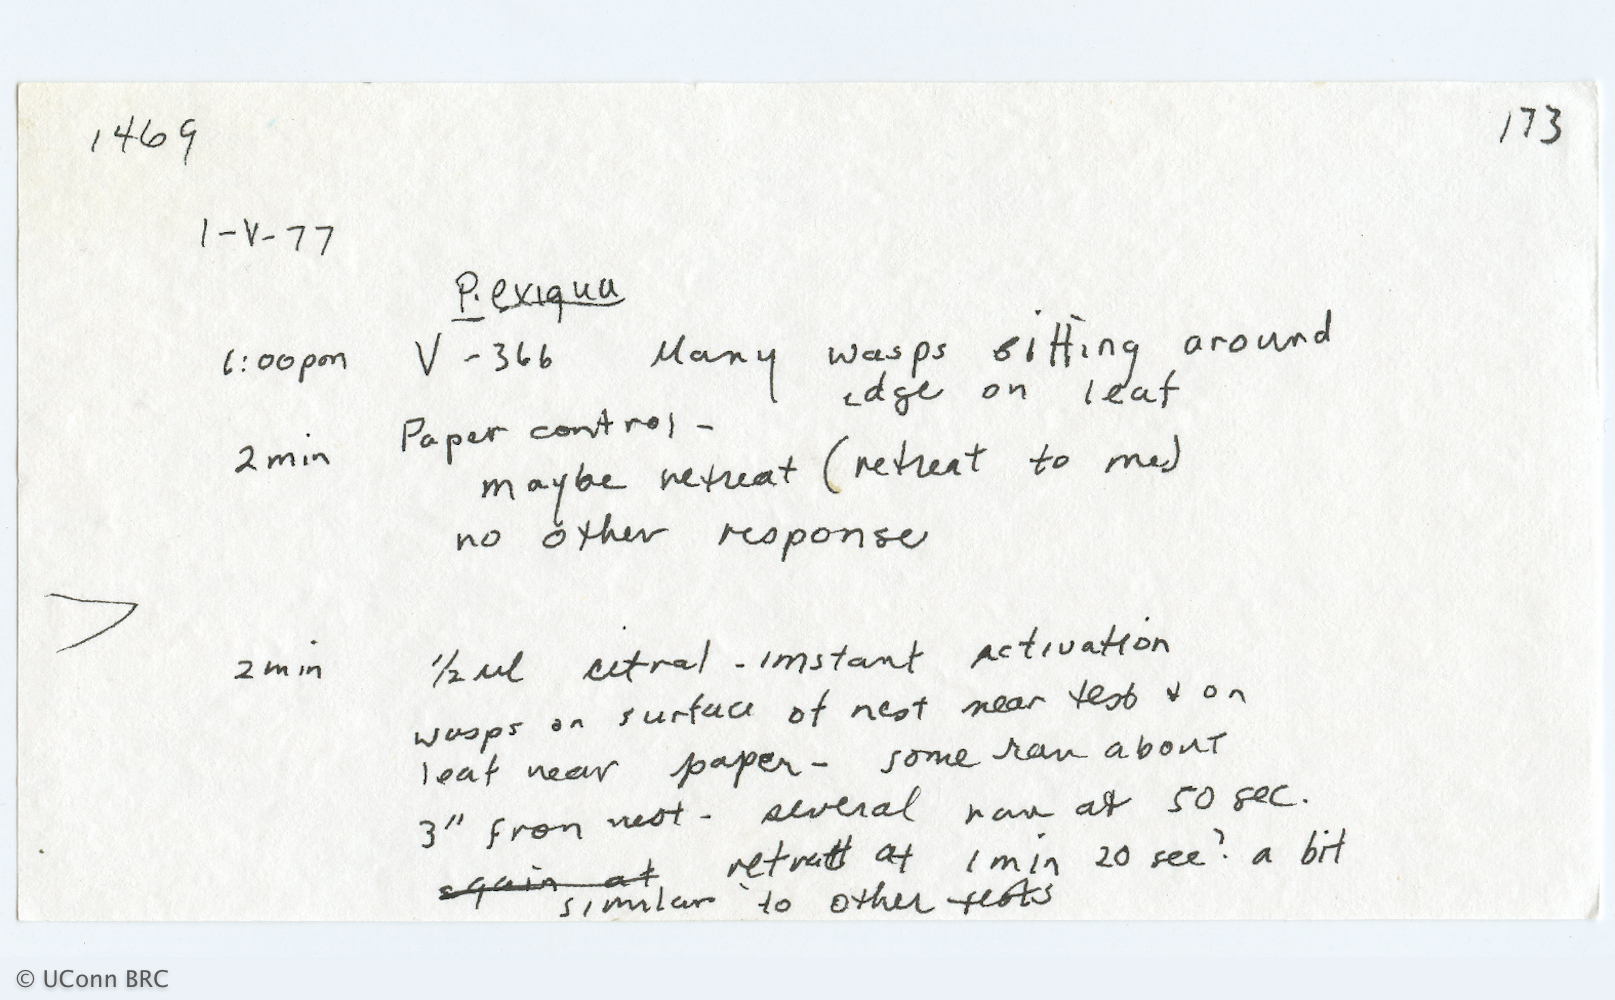 1469
173
1-V-77
P. exigua
1:00pm V-366 Many wasps sitting around
edge on leaf
2 min Paper control -
maybe retreat (retreat to me)
no other response
2 min 1/2 ul citral - instant activation
wasps on surface of nest near test & on
leaf near paper - some ran about
3" from nest - several ran at 50 sec.
again at retreat at 1 min 20 sec? a bit
similar to other tests
© UConn BRC